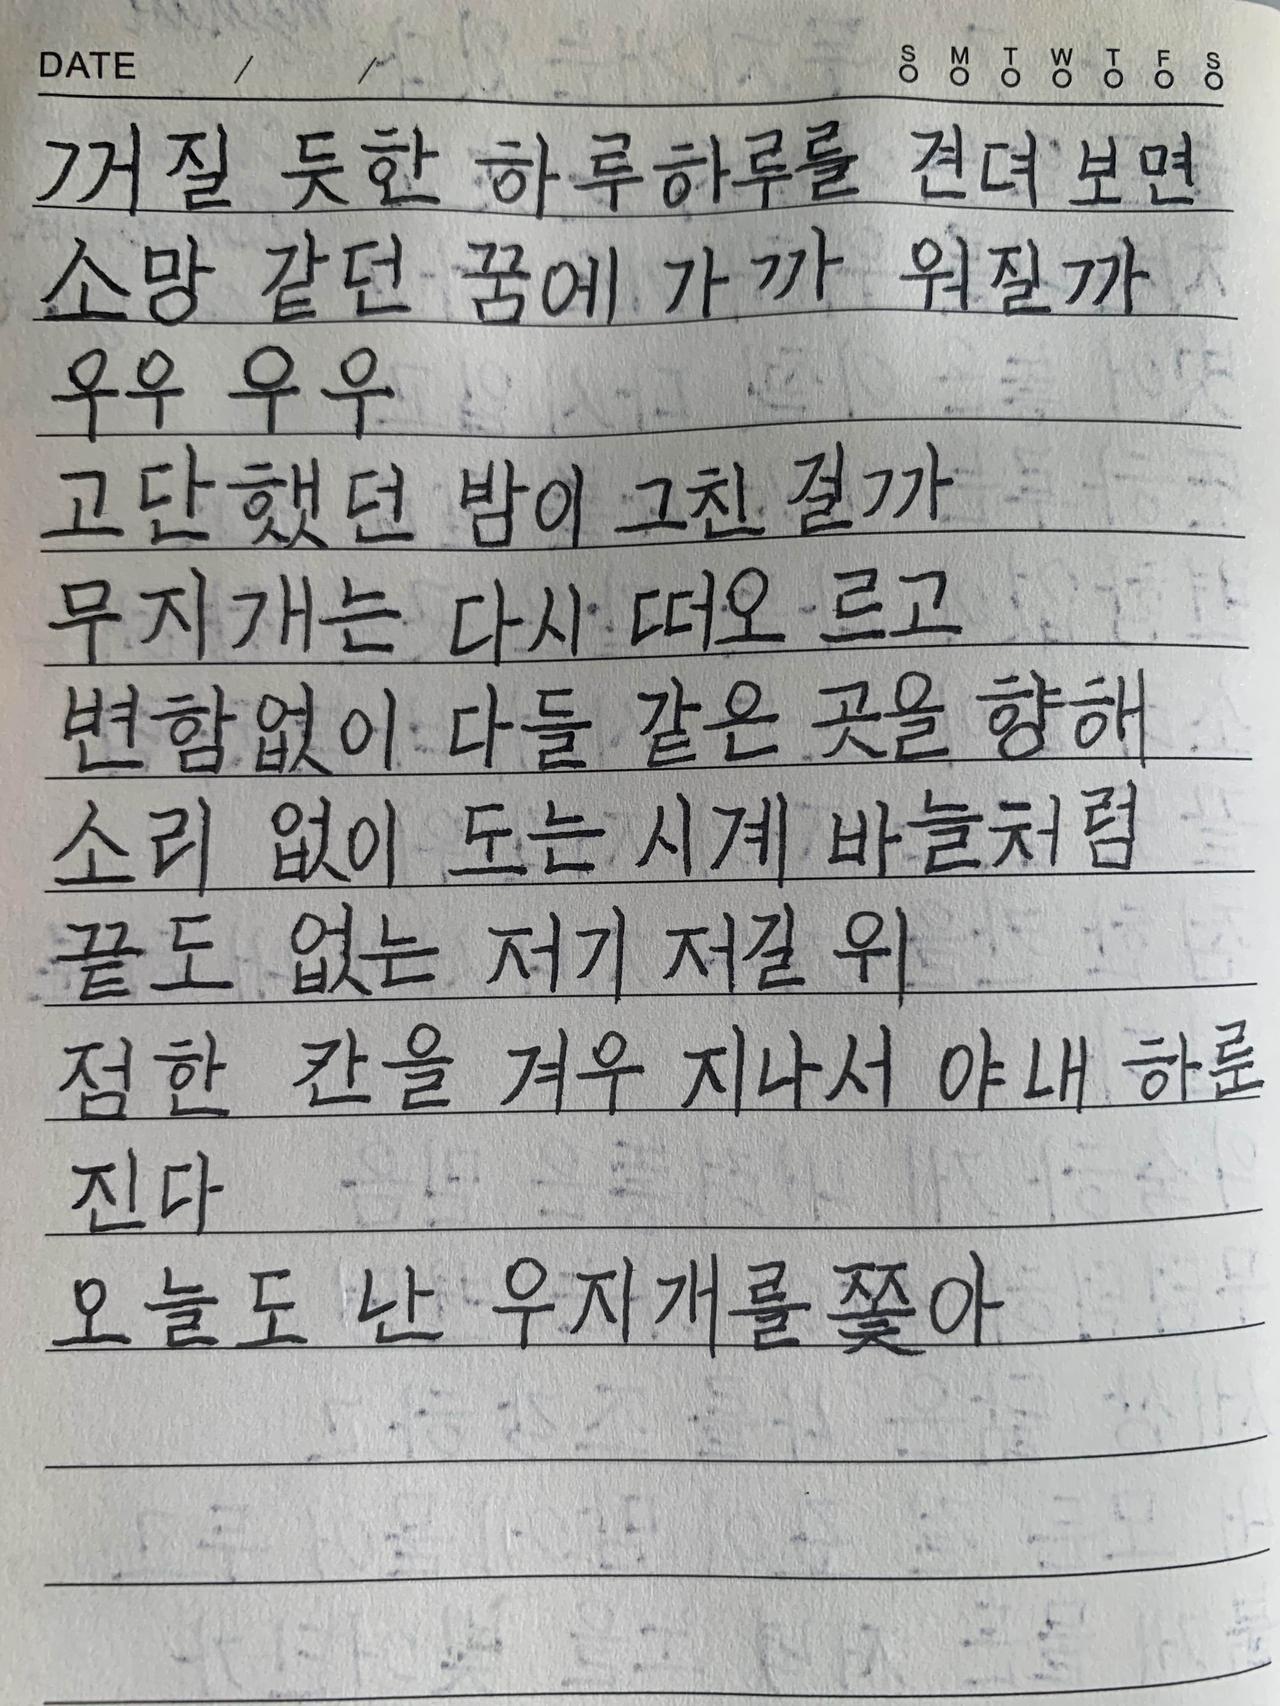 DATE / / S M T W T F S
꺼질 듯한 하루하루를 견뎌 보면
소망 같던 꿈에 가까 워질까
우우 우우
고단했던 밤이 그친 걸까
무지개는 다시 떠오 르고
변함없이 다들 같은 곳을 향해
소리 없이 도는 시계 바늘처럼
끝도 없는 저기 저길 위
점한 칸을 겨우 지나서 야내 하룬
진다
오늘도 난 우지개를 쫓아